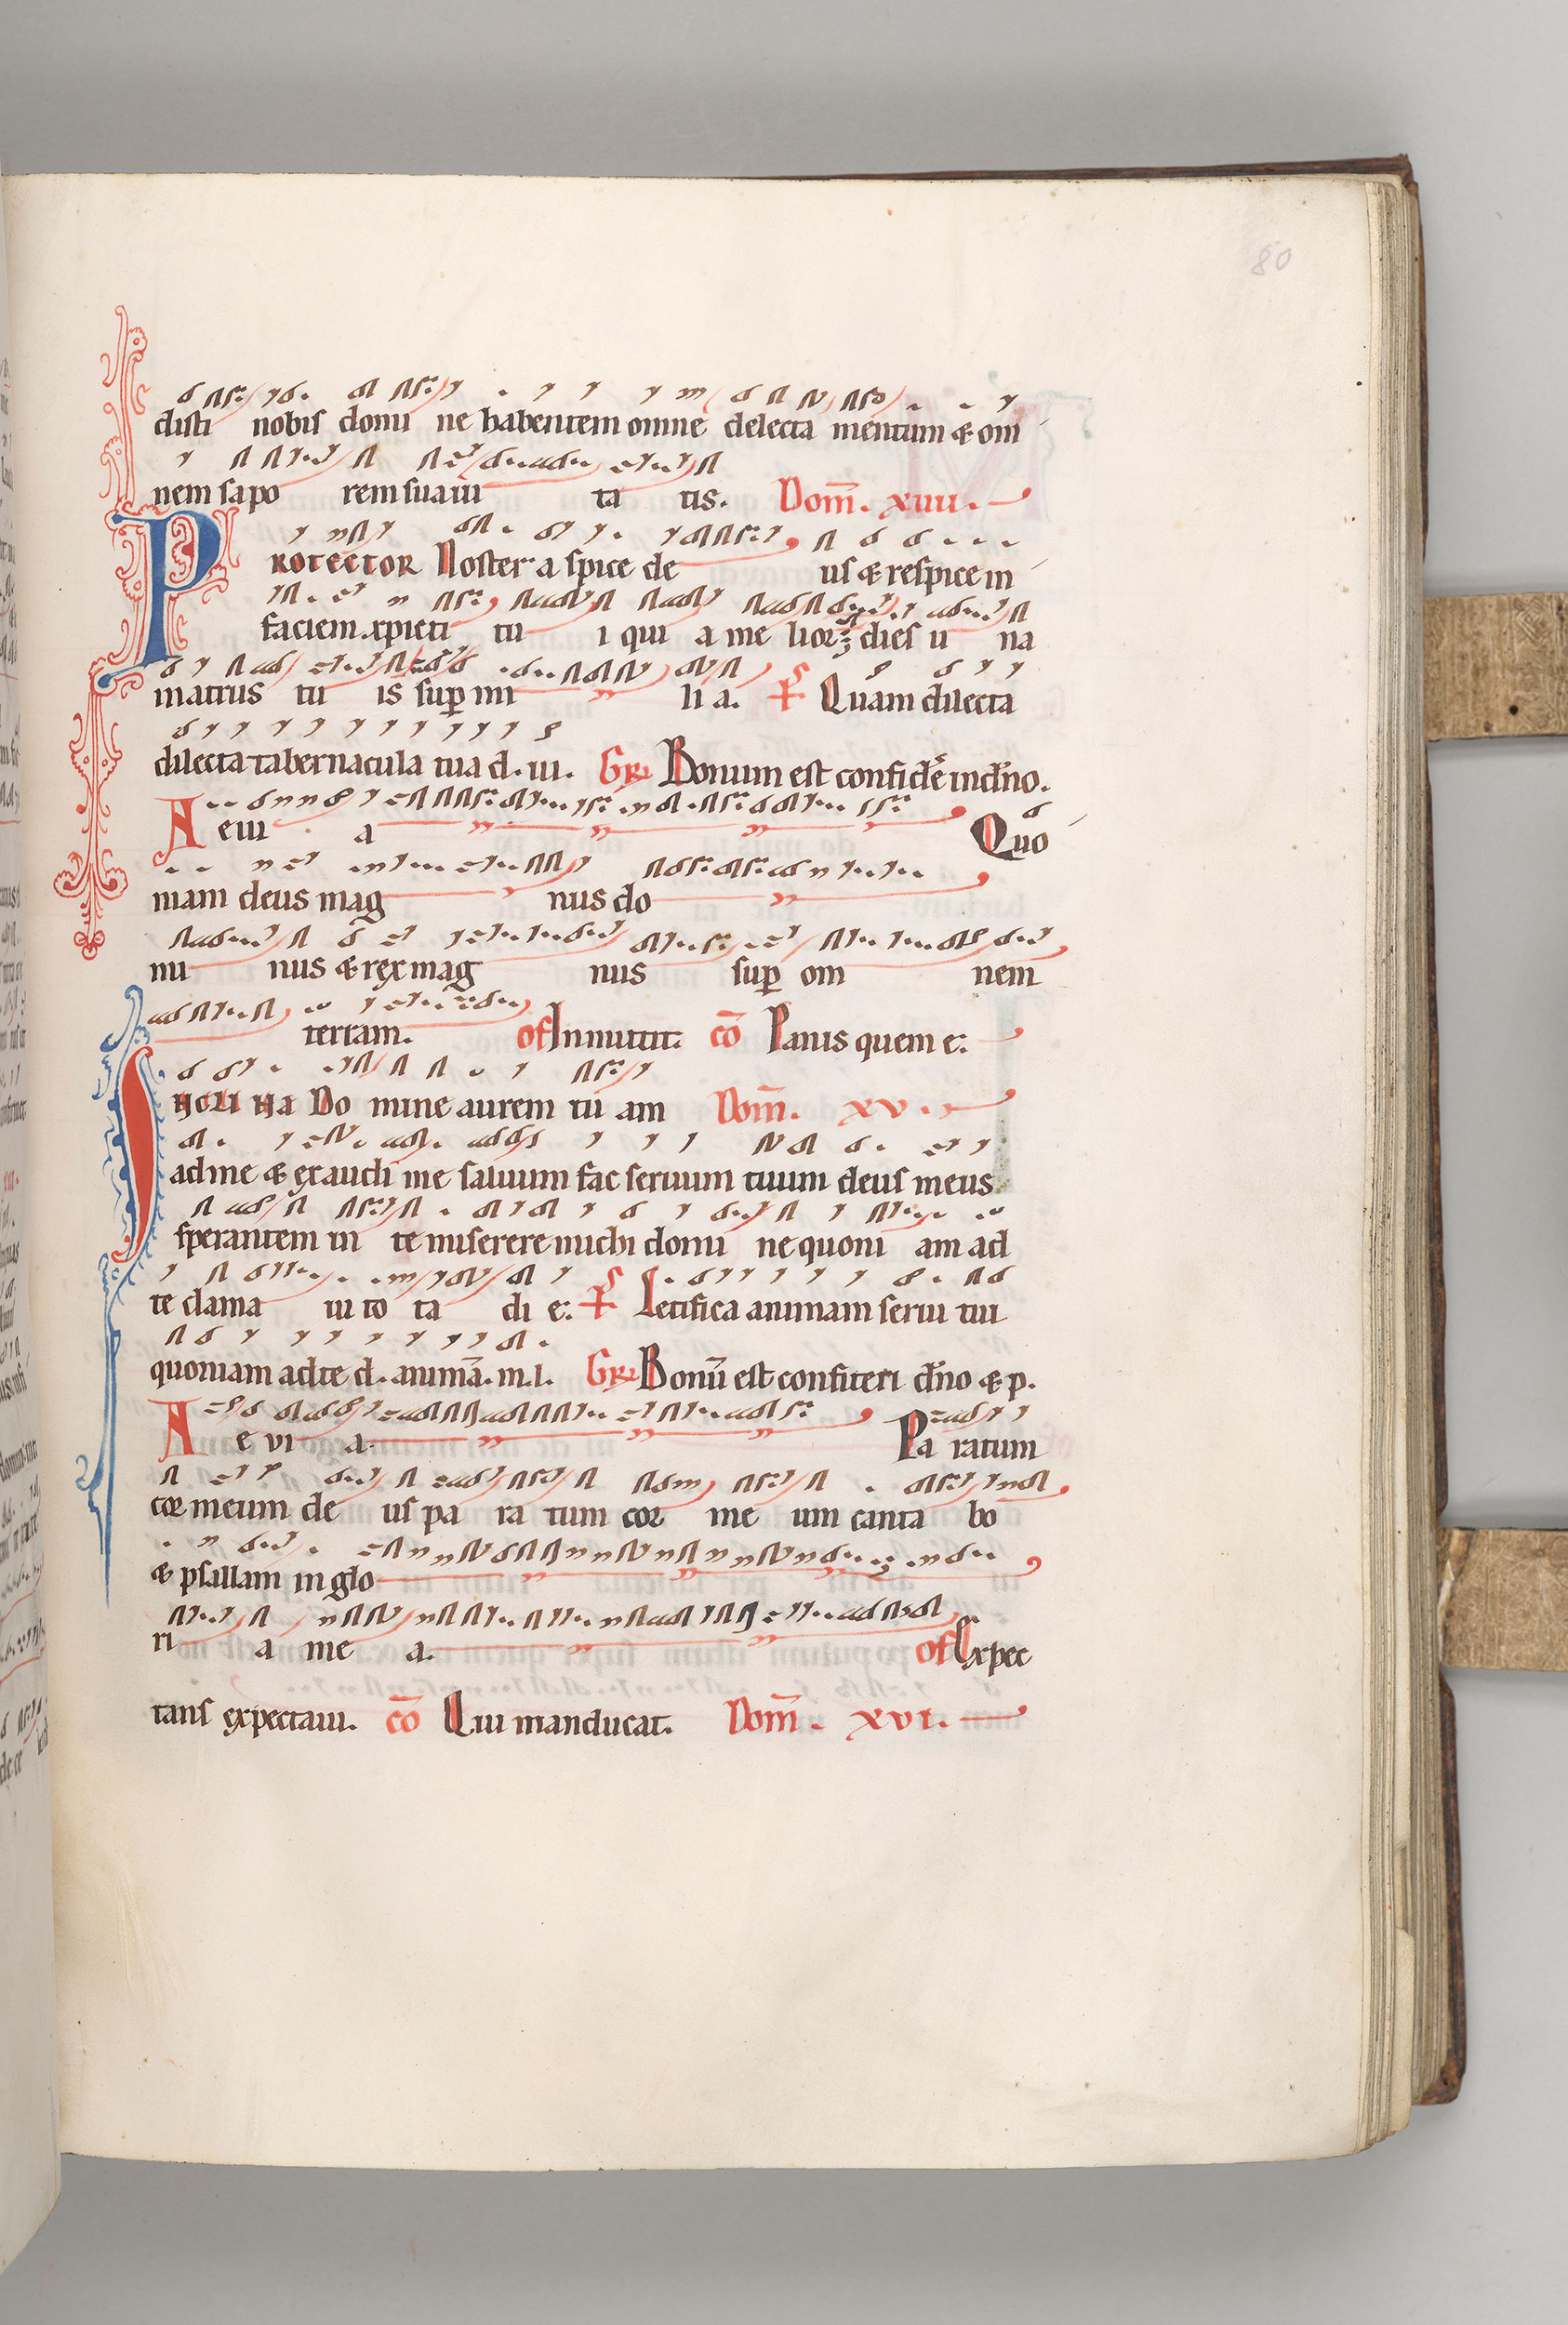 80
disti nobis domi ne habentem omne delecta mentum & om
nem sapo rem suaui ta tis. Dom̄. xiiii.
PROTECTOR Noster a spice de us & respice in
faciem .xpi eti tu i qui a me liorꝫ dies u na
inatriis tu is sup̱ mi li a. Ps Quam dilecta
dilecta tabernacula tua d. ui. Gr̄ Bonum est confide in dn̄o.
Aeui a Quo
niam deus mag nus do
mi nus & rex mag nus sup̱ om nem
terram. of Inmittit. cō Panis quem e.
INCLI NA Do mine aurem tu am Dom̄. xv.
ad me & exaudi me saluum fac seruum tuum deus meus
sperantem in te miserere michi domi ne quoni am ad
te clama ui to ta di e. Ps Letifica animam serui tui
quoniam ad te d. animā. m. l. Gr̄ Bonū est confiteri dn̄o & p.
Aeui a. Pa ratum
cor meum de us pa ra tum cor me um canta bo
& psallam in glo
ri a me a. of Expec
tans expectaui. cō Qui manducat. Dom̄. xvi.